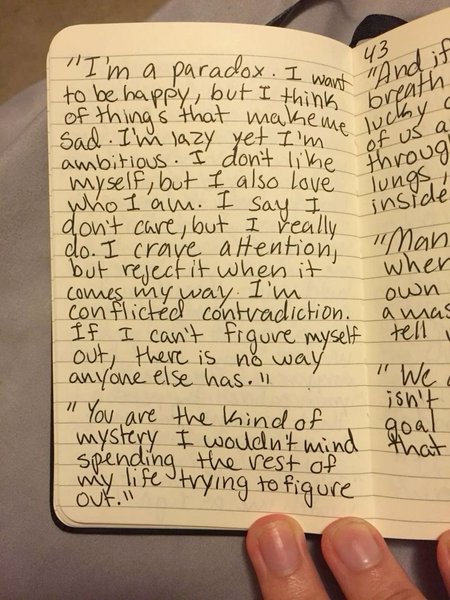 "I'm a paradox. I want
to be happy, but I think
of things that make me
sad. I'm lazy yet I'm
ambitious. I don't like
myself, but I also love
who I am. I say I
don't care, but I really
do. I crave attention,
but reject it when it
comes my way. I'm
conflicted contradiction.
If I can't figure myself
out, there is no way
anyone else has."
"You are the kind of
mystery I wouldn't mind
spending the rest of
my life trying to figure
out."
43
"And if
breath
lucky
of us a
through
lungs,
inside
"Man
when
own
a mas
tell
"We
isn't
goal
that